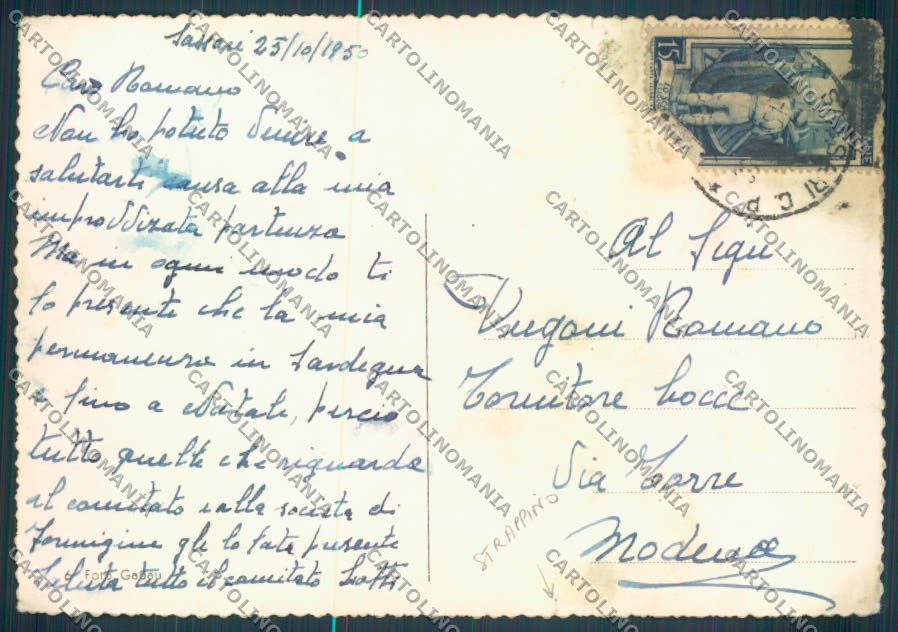 Sassari 25/10/1950
Caro Romano
Non ho potuto venire a
salutarti causa alla mia
improvvizata partenza
Ma in ogni modo ti
fo presente che la mia
permanenza in Sardegna
è fino a Natale, perciò
tutto quello che riguarda
al comitato e alla società di
Formigine gli lo fata presente
Saluta tutto il comitato
Foto Gabau
15
Al Sigr
Vregoni Romano
Tornitore bocce
Via Torre
Modena
STRAPPINO
CARTOLINOMANIA